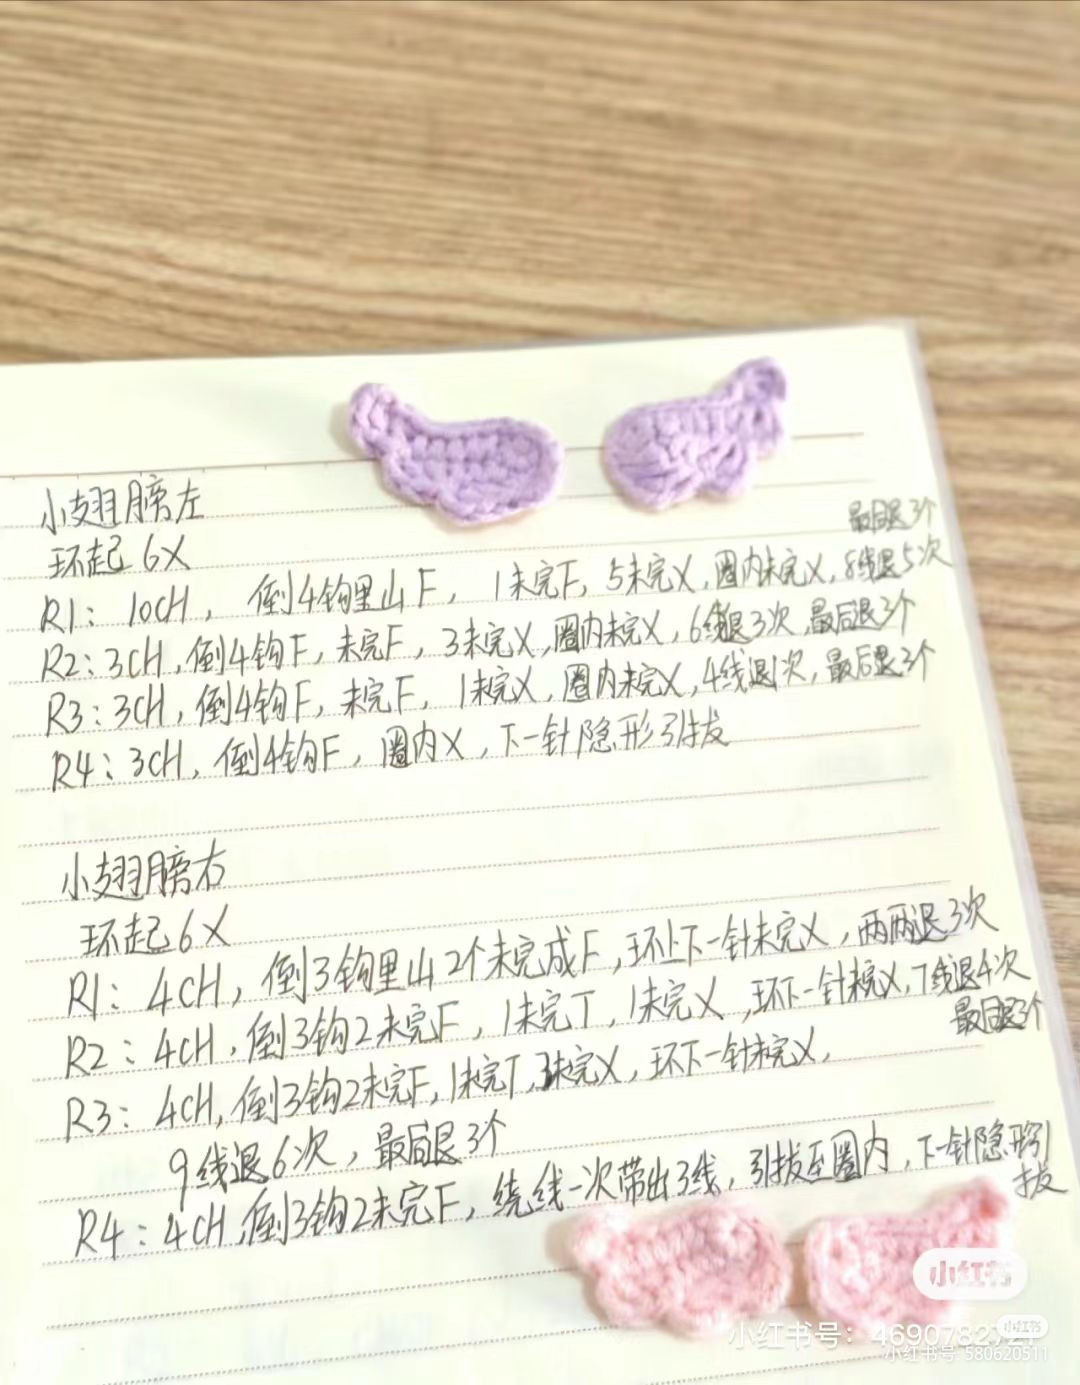 小翅膀左
环起 6X
R1: 10CH, 倒4钩里山F, 1未完F, 5未完X, 圈内未完X, 8线退5次
最后退3个
R2: 3CH, 倒4钩F, 未完F, 3未完X, 圈内未完X, 6线退3次, 最后退3个
R3: 3CH, 倒4钩F, 未完F, 1未完X, 圈内未完X, 4线退1次, 最后退3个
R4: 3CH, 倒4钩F, 圈内X, 下一针隐形引拔
小翅膀右
环起6X
R1: 4CH, 倒3钩里山2个未完成F, 环上下一针未完X, 两两退3次
R2: 4CH, 倒3钩2未完F, 1未完T, 1未完X, 环下一针未完X, 7线退4次
最后退3个
R3: 4CH, 倒3钩2未完F, 1未完T, 3未完X, 环下一针未完X,
9线退6次, 最后退3个
R4: 4CH, 倒3钩2未完F, 绕线一次带出3线, 引拔至圈内, 下一针隐形引
拔
小红书
小红书
小红书号: 469078272
小红书号: 580620511